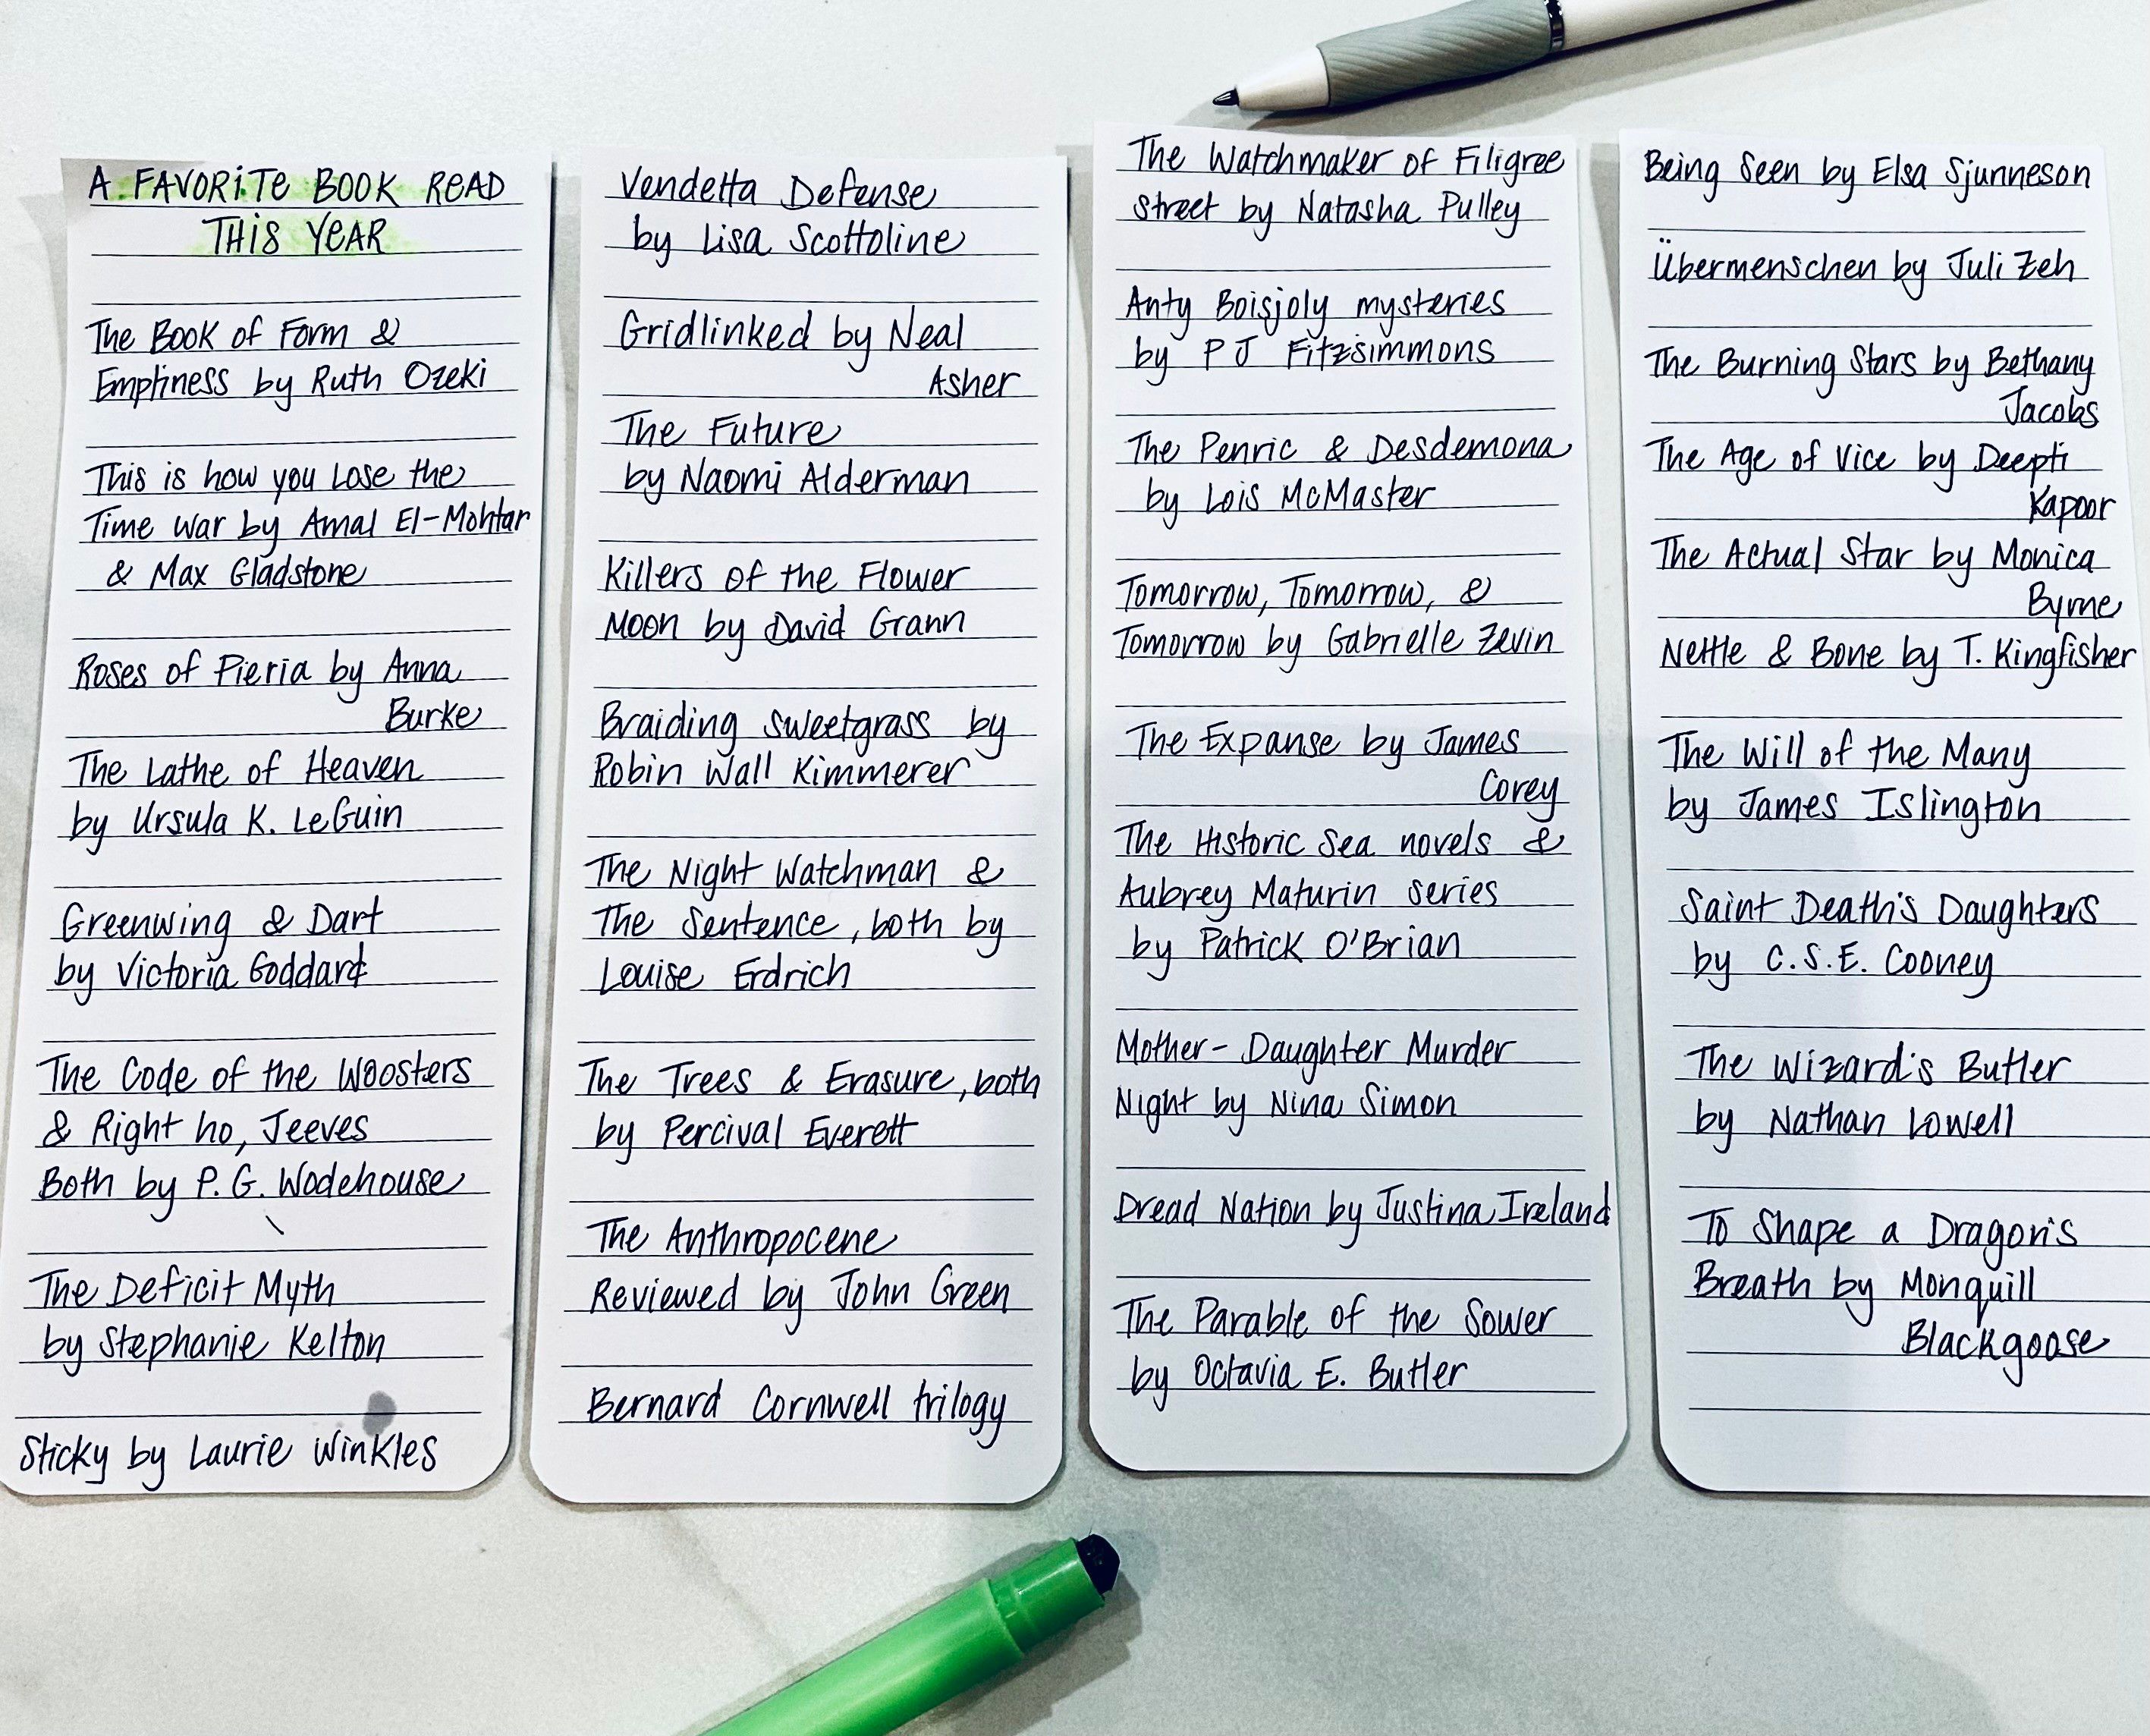 A FAVORITE BOOK READ
THIS YEAR
The Book of Form &
Emptiness by Ruth Ozeki
This is how you Lose the
Time war by Amal El-Mohtar
& Max Gladstone
Roses of Pieria by Anna
Burke
The Lathe of Heaven
by Ursula K. LeGuin
Greenwing & Dart
by Victoria Goddard
The Code of the Woosters
& Right ho, Jeeves
Both by P. G. Wodehouse
The Deficit Myth
by Stephanie Kelton
Sticky by Laurie Winkles
Vendetta Defense
by Lisa Scottoline
Gridlinked by Neal
Asher
The Future
by Naomi Alderman
Killers of the Flower
Moon by David Grann
Braiding sweetgrass by
Robin Wall Kimmerer
The Night Watchman &
The Sentence, both by
Louise Erdrich
The Trees & Erasure, both
by Percival Everett
The Anthropocene
Reviewed by John Green
Bernard Cornwell trilogy
The Watchmaker of Filigree
street by Natasha Pulley
Anty Boisjoly mysteries
by P J Fitzsimmons
The Penric & Desdemona
by Lois McMaster
Tomorrow, Tomorrow, &
Tomorrow by Gabrielle Zevin
The Expanse by James
Corey
The Historic Sea novels &
Aubrey Maturin series
by Patrick O'Brian
Mother-Daughter Murder
Night by Nina Simon
Dread Nation by Justina Ireland
The Parable of the Sower
by Octavia E. Butler
Being Seen by Elsa Sjunneson
Übermenschen by Juli Zeh
The Burning Stars by Bethany
Jacobs
The Age of Vice by Deepti
Kapoor
The Actual Star by Monica
Byrne
Nettle & Bone by T. Kingfisher
The Will of the Many
by James Islington
Saint Death's Daughters
by C.S.E. Cooney
The Wizard's Butler
by Nathan Lowell
To Shape a Dragon's
Breath by Monquill
Blackgoose